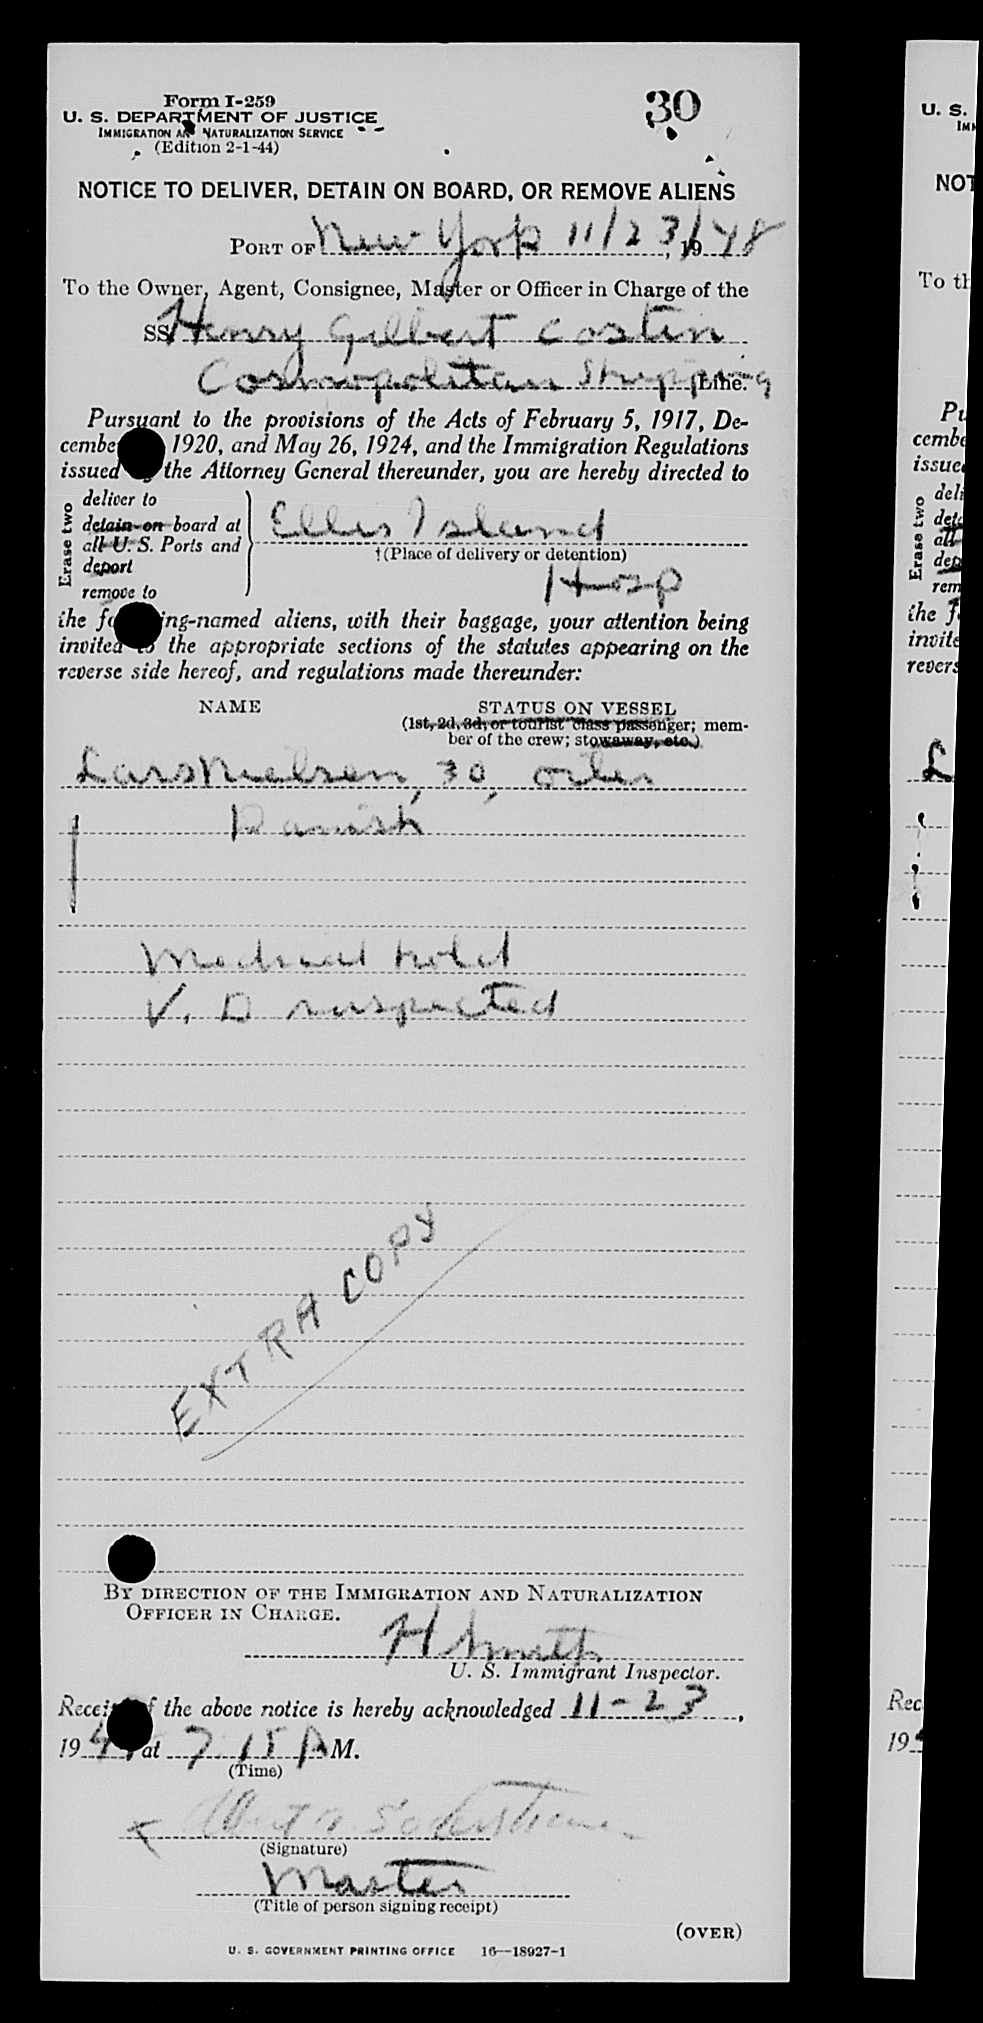 Form I-259
30
U. S. DEPARTMENT OF JUSTICE
IMMIGRATION AND NATURALIZATION SERVICE
(Edition 2-1-44)
NOTICE TO DELIVER, DETAIN ON BOARD, OR REMOVE ALIENS
PORT OF New York 11/23, 1948
To the Owner, Agent, Consignee, Master or Officer in Charge of the
SS Henry Gilbert Costin
Cosmopolitan Shipping Line.
Pursuant to the provisions of the Acts of February 5, 1917, De-
cembe 1920, and May 26, 1924, and the Immigration Regulations
issued the Attorney General thereunder, you are hereby directed to
Erase two
deliver to
detain on board at
all U. S. Ports and
deport
remove to
Ellis Island
†(Place of delivery or detention)
Hosp
the fo ing-named aliens, with their baggage, your attention being
invited to the appropriate sections of the statutes appearing on the
reverse side hereof, and regulations made thereunder:
NAME STATUS ON VESSEL
(1st, 2d, 3d, or tourist class passenger; mem-
ber of the crew; stowaway, etc.)
Lars Nielsen, 30, oiler
Danish
Medical hold
V. D suspected
EXTRA COPY
BY DIRECTION OF THE IMMIGRATION AND NATURALIZATION
OFFICER IN CHARGE.
H Smith
U. S. Immigrant Inspector.
Recei f the above notice is hereby acknowledged 11-23,
194 at 7 15 P M.
(Time)
x Albert
(Signature)
Master
(Title of person signing receipt)
(OVER)
U. S. GOVERNMENT PRINTING OFFICE 16—18927-1
U. S.
IMM
NOT
To th
Pu
cembe
issued
Erase two
deli
deta
all
dep
rem
the f
invite
revers
L
Rec
19